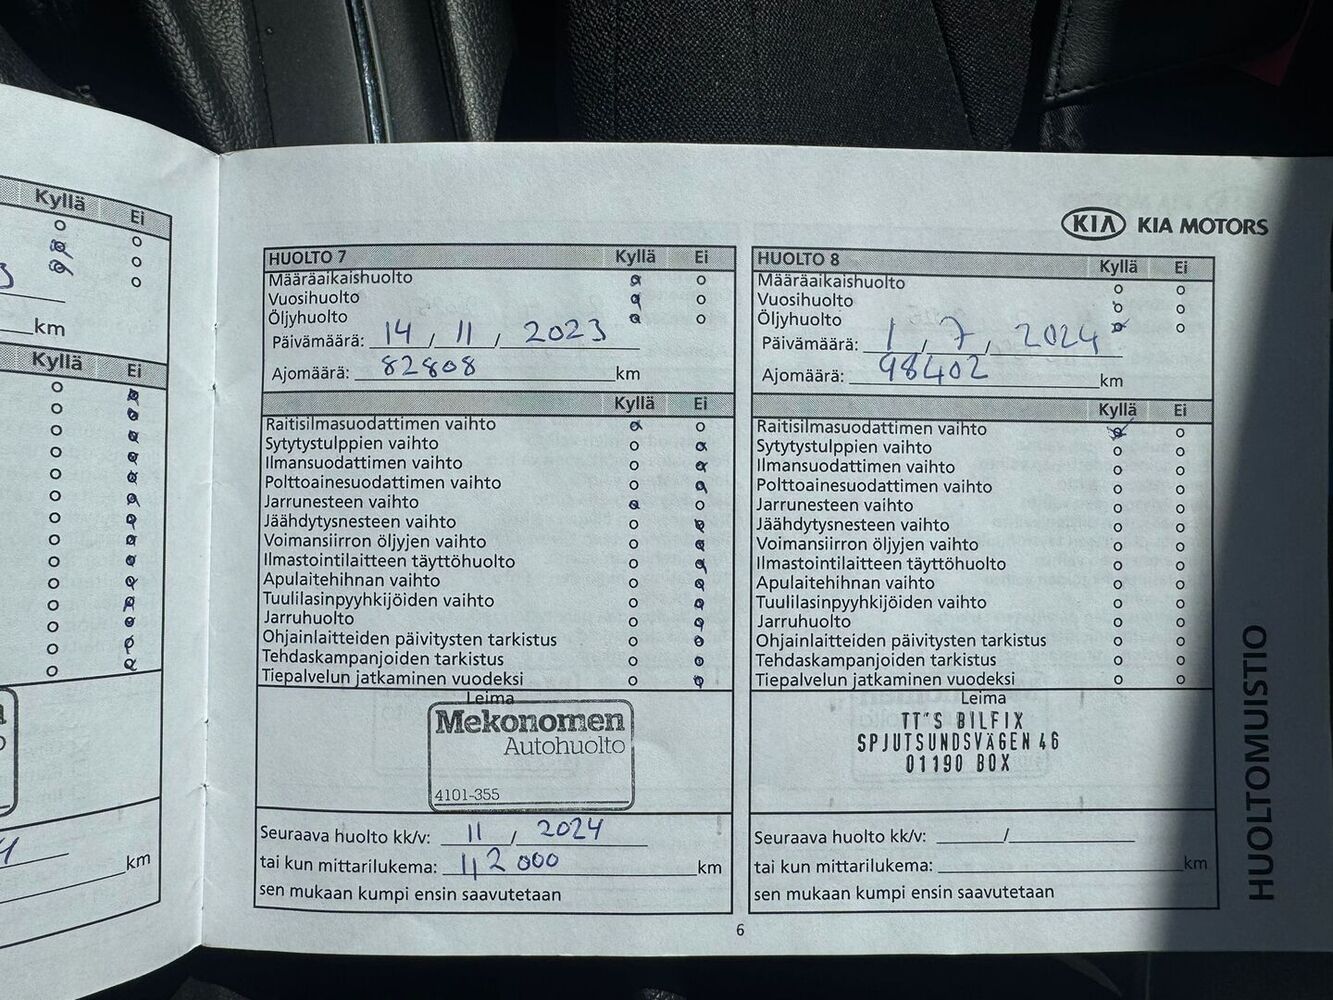 Kyllä Ei
km
Kyllä Ei
km
KIA KIA MOTORS
HUOLTO 7 Kyllä Ei
Määräaikaishuolto
Vuosihuolto
Öljyhuolto
Päivämäärä: 14 / 11 / 2023
Ajomäärä: 82808 km
Kyllä Ei
Raitisilmasuodattimen vaihto
Sytytystulppien vaihto
Ilmansuodattimen vaihto
Polttoainesuodattimen vaihto
Jarrunesteen vaihto
Jäähdytysnesteen vaihto
Voimansiirron öljyjen vaihto
Ilmastointilaitteen täyttöhuolto
Apulaitehihnan vaihto
Tuulilasinpyyhkijöiden vaihto
Jarruhuolto
Ohjainlaitteiden päivitysten tarkistus
Tehdaskampanjoiden tarkistus
Tiepalvelun jatkaminen vuodeksi
Leima
Mekonomen
Autohuolto
4101-355
Seuraava huolto kk/v: 11 / 2024
tai kun mittarilukema: 112 000 km
sen mukaan kumpi ensin saavutetaan
HUOLTO 8 Kyllä Ei
Määräaikaishuolto
Vuosihuolto
Öljyhuolto
Päivämäärä: 1 / 7 / 2024
Ajomäärä: 98402 km
Kyllä Ei
Raitisilmasuodattimen vaihto
Sytytystulppien vaihto
Ilmansuodattimen vaihto
Polttoainesuodattimen vaihto
Jarrunesteen vaihto
Jäähdytysnesteen vaihto
Voimansiirron öljyjen vaihto
Ilmastointilaitteen täyttöhuolto
Apulaitehihnan vaihto
Tuulilasinpyyhkijöiden vaihto
Jarruhuolto
Ohjainlaitteiden päivitysten tarkistus
Tehdaskampanjoiden tarkistus
Tiepalvelun jatkaminen vuodeksi
Leima
TT'S BILFIX
SPJUTSUNDSVÄGEN 46
01190 BOX
Seuraava huolto kk/v: /
tai kun mittarilukema: km
sen mukaan kumpi ensin saavutetaan
HUOLTOMUISTIO
6